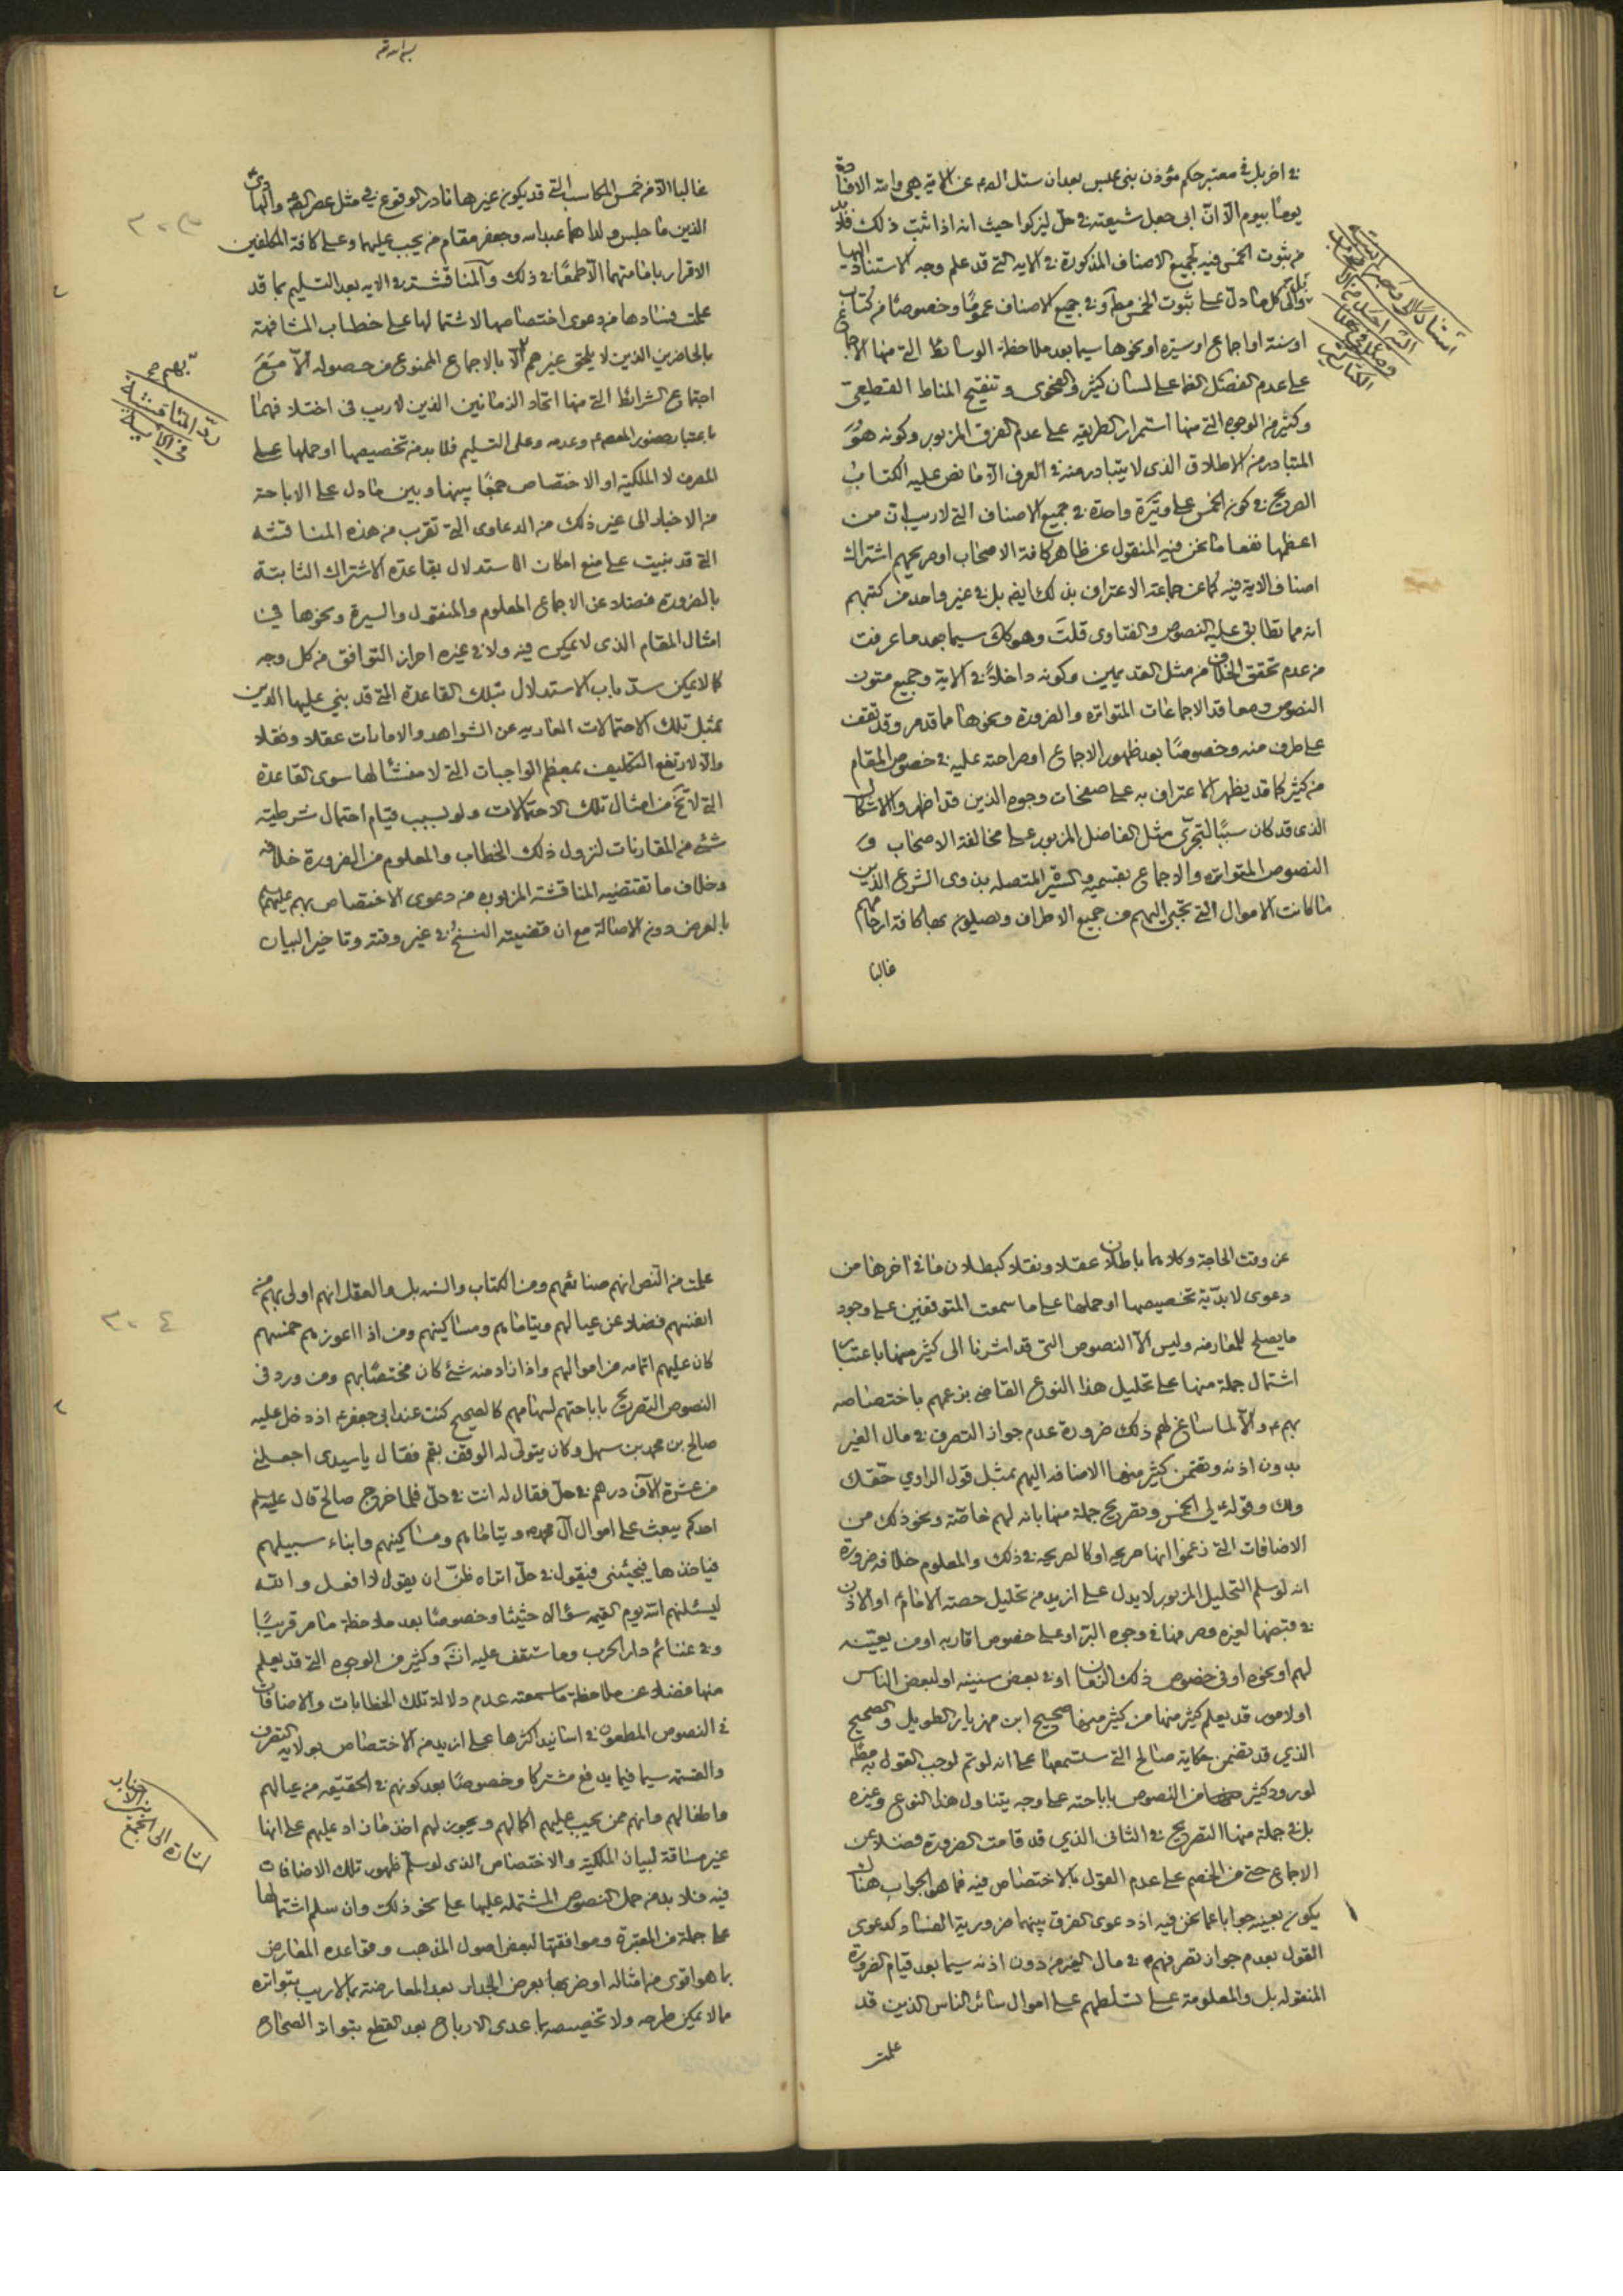 في اخر بل في معتبر حكم مؤذن بني عبس بعد ان سئل الصم عن الاية هي والله الافادة
يومًا بيوم الا انّ ابى جعل شيعته في حل ليزكوا حيث انه اذا ثبت ذلك فلابد
من ثبوت الخمس فيه لجميع الاصناف المذكورة في الاية التي قد علم وجه الاستناد اليها
والى كل ما دلّ على ثبوت الخمس مط او في جميع الاصناف عمومًا وخصوصًا من كتاب
او سنة او اجماع او سيرة او نحوها سيما بعد ملاحظة الوسائط التي منها الاجماع
على عدم الفصل الظ على لسان كثير والفحوى وتنقيح المناط القطيعى
وكثير من الوجوه التي منها استمرار الطريقه على عدم الفرق المزبور وكونه هو
المتبادر من الاطلاق الذى لا يتبادر منه في العرف الا ما نص عليه الكتاب
الصريح في كون الخمس على وتيرة واحدة في جميع الاصناف التي لا ريب ان من
اعظمها نفعا ما نحن فيه المنقول عن ظاهر كافة الاصحاب او صريحهم اشتراك
اصناف الاية فيه كما عن جماعة الاعتراف بذلك ايضه بل في غير واحد من كتبهم
انه مما تطابق عليه النصوص والفتاوى قلت وهو كك سيما بعد ما عرفت
من عدم تحقق الخلاف من مثل القديمين وكونه داخلاً في الاية وجميع متون
النصوص ومعاقد الاجماعات المتواتره والضرورة ونحوها مما قد مر وقد تقف
على طرف منه وخصوصًا بعد ظهور الاجماع او صراحته عليه في خصوص المقام
من كثير كما قد يظهر الاعتراف به على صفحات وجوه الذين قد اظهروا الاشكال
الذى قد كان سببًا لتجرى مثل الفاضل المزبور على مخالفة الاصحاب و
النصوص المتواتره والاجماع بقسميه والسيرة المتصله بذوى الشرع الذين
ما كانت الاموال التي تجبى اليهم من جميع الاطراف ويصلون بها كافة ارحامهم
غالبا
غالبا الا من خمس المكاسب التي قد يكون غيرها نادر الوقوع في مثل عصر الصم والهادي
الذين ما جلس ولداهما عبدالله وجعفر مقام من يجب عليهما وعلى كافة المكلفين
الاقرار بامامتهما الا طمعًا في ذلك والمناقشة في الايه بعد التسليم بما قد
علمت فسادها من دعوى اختصاصها لاشتمالها على خطاب المشافهة
بالحاضرين الذين لا يلحق غيرهم الا بالاجماع الممنوع من حصوله الا مع
اجتماع الشرائط التي منها اتحاد الزمانين الذين لا ريب في اختلافهما
باعتبار حضور المعصوم وعدمه وعلى التسليم فلا بد من تخصيصها او حملها على
المصرف لا الملكية او الاختصاص جمعًا بينها وبين ما دل على الاباحة
من الاخبار الى غير ذلك من الدعاوى التي تقرب من هذه المناقشه
التي قد بنيت على منع امكان الاستدلال بقاعدة الاشتراك الثابتة
بالضرورة فضلا عن الاجماع المعلوم والمنقول والسيرة ونحوها في
امثال المقام الذى لا يمكن فيه ولا في غيره احراز التوافق من كل وجه
كما لا يمكن سدّ باب الاستدلال بتلك القاعدة التي قد بنى عليها الدين
بمثل تلك الاحتمالات العاريه عن الشواهد والامارات عقلا ونقلا
والا لارتفع التكليف بمعظم الواجبات التي لا منشأ لها سوى القاعدة
التي لا تخ من امثال تلك الاحتمالات ولو بسبب قيام احتمال شرطية
شئ من المقارنات لنزول ذلك الخطاب والمعلوم من الضرورة خلافه
وخلاف ما تقتضيه المناقشة المزبوره من دعوى الاختصاص بهم عليهم
بالعرض دون الاصالة مع ان قضيته النسخ في غير وقته وتاخير البيان
ردّ المناقشة
في الاية
٣٠٣
عن وقت الحاجة وكلاهما باطلان عقلا ونقلا كبطلان ما في اخرها من
دعوى لابدّية تخصيصها او حملها على ما سمعت المتوقفين على وجود
ما يصلح للمعارضه وليس الا النصوص التي قد اشرنا الى كثير منها باعتبار
اشتمال جملة منها على تحليل هذا النوع القاضي بزعمهم باختصاصه
بهم والا لما ساغ لهم ذلك ضرورة عدم جواز التصرف في مال الغير
بدون اذنه وتضمن كثير منها الاضافه اليهم بمثل قول الراوي حقّك
ولك وقوله لي الخمس وتصريح جملة منها بانه لهم خاصّة ونحو ذلك من
الاضافات التي زعموا انها صريحه او كالصريحه في ذلك والمعلوم خلافه ضرورة
انه لو سلم التحليل المزبور لا يدل على ازيد من تحليل حصة الامام او الاذن
في قبضها لغيره وصرفها في وجوه البرّ او على خصوص اقاربه او من يعيّنه
لهم او نحوه او في خصوص ذلك الزمان او في بعض سنينه او لبعض الناس
او لامور قد يعلم كثير منها من كثير منها صحيح ابن مهزيار الطويل والصحيح
الذي قد تضمن حكاية صالح التي ستسمعها على انه لو تم لوجب القول به مط
لورود كثير من النصوص باباحته على وجه يتناول هذا النوع وغيره
بل في جملة منها التصريح في الثاني الذي قد قامت الضرورة فضلا عن
الاجماع حتى من الخصم على عدم القول بالاختصاص فيه فما هو الجواب هناك
يكون بعينه جوابا عما نحن فيه اذ دعوى الفرق بينهما ضرورية الفساد كدعوى
القول بعدم جواز تصرفهم في مال الغير من دون اذنه سيما بعد قيام الضرورة
المنقوله بل والمعلومة على تسلطهم على اموال سائر الناس الذين قد
علمت
علمت من النص انهم صنائعهم ومن الكتاب والسنه بل والعقل انهم اولى بهم من
انفسهم فضلا عن عيالهم ويتاماهم ومساكينهم ومن اذا اعوزهم خمسهم
كان عليهم اتمامه من اموالهم واذا زاد منه شئ كان مختصًا بهم ومن ورد في
النصوص التصريح باباحتهم لسهامهم كالصحيح كنت عند ابي جعفر اذ دخل عليه
صالح بن محمد بن سهل وكان يتولى له الوقف بقم فقال يا سيدى اجعلنى
من عشرة الآف درهم في حل فقال له انت في حلّ فلما خرج صالح قال عليه
احدكم يبعث على اموال آل محمد ويتاماهم ومساكينهم وابناء سبيلهم
فياخذها فيجيئنى فيقول في حل اتراه ظنّ ان يقول لا افعل والله
ليسئلنهم الله يوم القيمه سؤالا حثيثا وخصوصًا بعد ملاحظة ما مر قريبًا
وفي غنائم دار الحرب وما ستقف عليه انشَ وكثير من الوجوه التي قد يعلم
منها فضلا عن ملاحظة ما سمعته عدم دلالة تلك الخطابات والاضافات
في النصوص المطعون في اسانيد اكثرها على ازيد من الاختصاص بولايه التصرف
والقسمة سيما فيما يدفع مشتركا وخصوصًا بعد كونهم في الحقيقه من عيالهم
واطفالهم وانهم ممن يجب عليهم اكمالهم ويجوز لهم اخذ ما زاد عليهم على انها
غير مساقة لبيان الملكية والاختصاص الذى لو سلّم ظهور تلك الاضافات
فيه فلا بد من حمل النصوص المشتمله عليها على نحو ذلك وان سلم اشتمالها
على جملة من المعتبرة وموافقتها لبعض اصول المذهب وقواعده المعارض
بما هو اقوى من امثاله او ضربها بعرض الجدار بعد المعارضة بما لا ريب بتواتره
مما لا يمكن طرحه ولا تخصيصه بما عدى الارباح بعد القطع بتواتر الصحاح
اشارة الى الجمع
بين الاخبار
٣٠٤